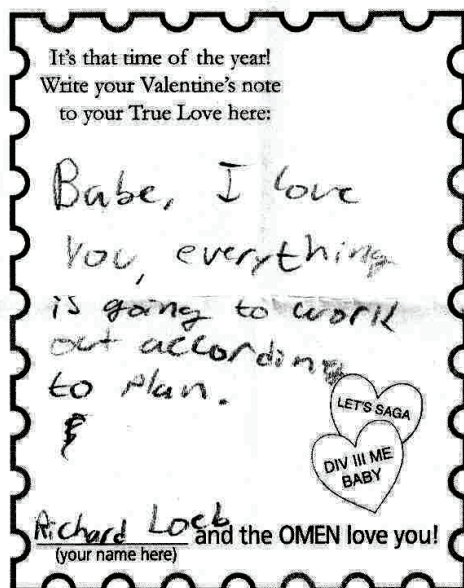 It's that time of the year!
Write your Valentine's note
to your True Love here:
Babe, I love
You, everything
is going to work
out according
to plan.
LET'S SAGA
DIV III ME
BABY
Richard Loeb and the OMEN love you!
(your name here)